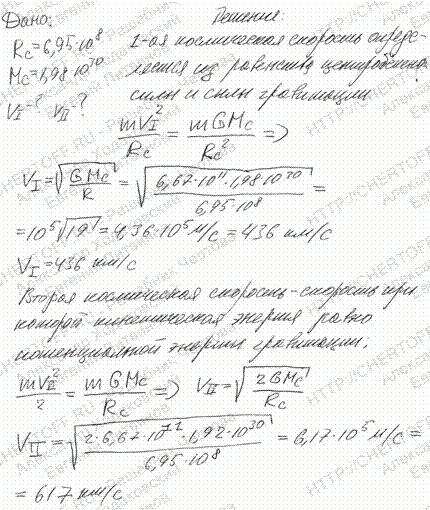 Дано: Решение:
Rc=6,95·10^8
Mc=1,98·10^30
V_I-? V_II-?
1-ая космическая скорость опреде-
ляется из равенства центробежной
силы и силы гравитации
mV_I^2/Rc = mGMc/Rc^2 =>
V_I=√(GMc/R) = √(6,67·10^11·1,98·10^30/6,95·10^8) =
=10^5√19 = 4,36·10^5 м/с = 436 км/с
V_I=436 км/с
Вторая космическая скорость - скорость при
которой кинетическая энергия равна
потенциальной энергии гравитации.
mV_II^2/2 = mGMc/Rc => V_II=√(2GMc/Rc)
V_II=√(2·6,67·10^11·1,92·10^30/6,95·10^8) = 6,17·10^5 м/с =
= 617 км/с